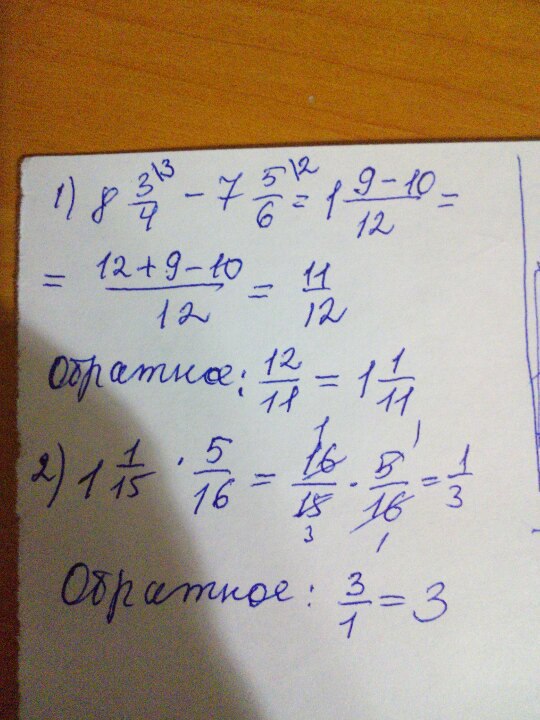 1) 8 3/4 \3 − 7 5/6 \2 = 1 9−10/12 =
= 12+9−10/12 = 11/12
Обратное: 12/11 = 1 1/11
2) 1 1/15 · 5/16 = 16/15 · 5/16 = 1/3
Обратное: 3/1 = 3